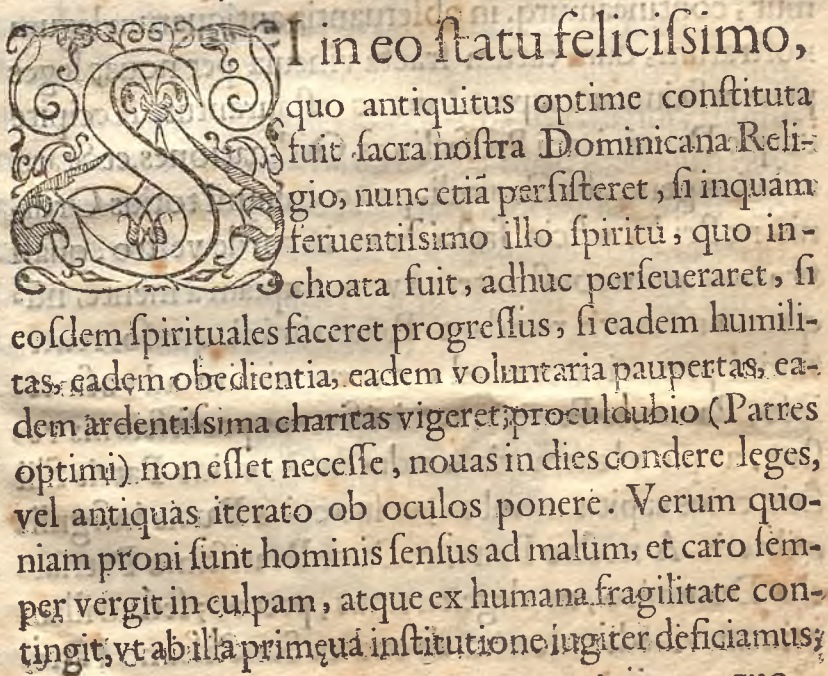 SI in eo ſtatu feliciſsimo,
quo antiquitus optime conſtituta
fuit ſacra noſtra Dominicana Reli-
gio, nunc etiã perſiſteret, ſi inquam
feruentiſsimo illo ſpiritu, quo in-
choata fuit, adhuc perſeueraret, ſi
eoſdem ſpirituales faceret progreſſus, ſi eadem humili-
tas, eadem obedientia, eadem voluntaria paupertas, ea-
dem ardentiſsima charitas vigeret; proculdubio (Patres
optimi) non eſſet neceſſe, nouas in dies condere leges,
vel antiquas iterato ob oculos ponere. Verum quo-
niam proni ſunt hominis ſenſus ad malum, et caro ſem-
per vergit in culpam, atque ex humana fragilitate con-
tingit, vt ab illa primęua inſtitutione iugiter deficiamus;